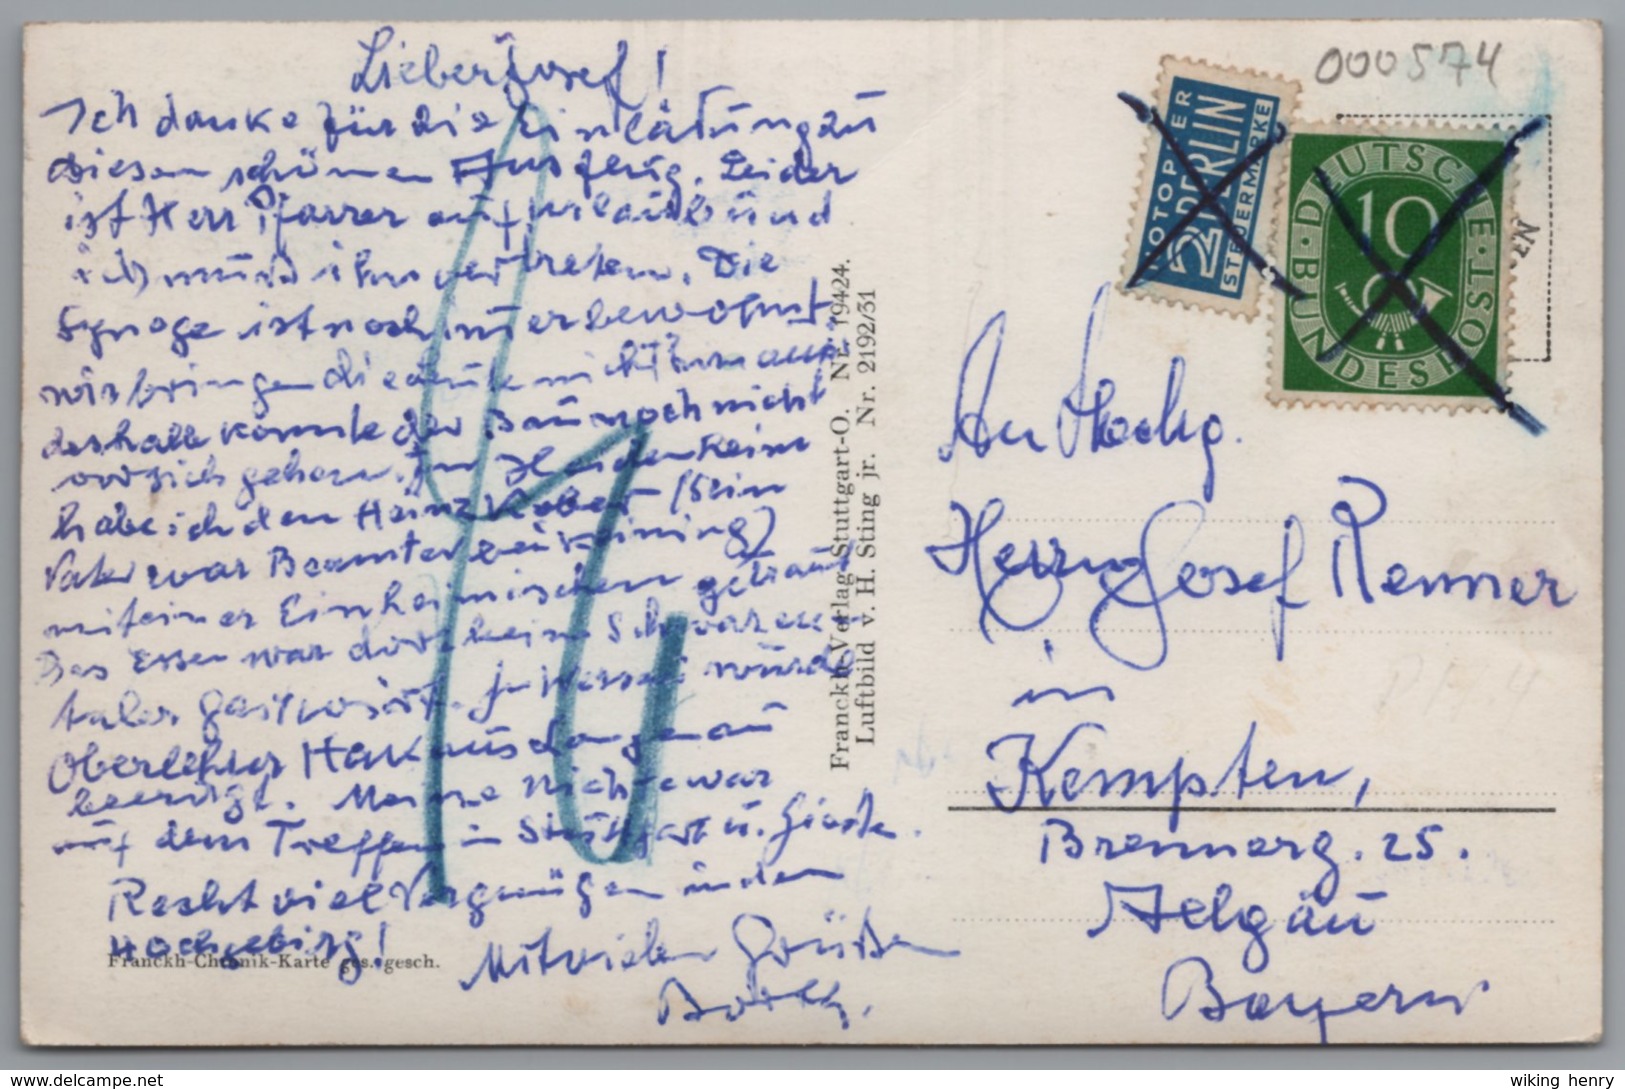 Lieber Josef!
Ich danke für die Einladung zu
diesem schönen Ausflug. Leider
ist Herr Pfarrer auf Urlaub und
ich muss ihn vertreten. Die
Synoge ist noch immer bewohnt,
wir bringen die Leute nicht hinaus
deshalb konnte der Bau noch nicht
vor sich gehen. In Heidenheim
habe ich den Heinz Kober (Sein
Vater war Beamter bei
mit einer Einheimischen getraut
Das Essen war dort beim Schwarzen-
taler Gastwirt. In würde
Oberlehrer
beerdigt. Meine Nichte war
auf dem Treffen in Stuttgart u.
Recht viel Vergnügen in den
Hochgebirg!
Mit vielen Grüßen
Franckh-Chronik-Karte ges. gesch.
Franckh-Verlag Stuttgart-O. Nr. 19424.
Luftbild v. H. Sting jr. Nr. 2192/31
000574
NOTOPFER
2 BERLIN
STEUERMARKE
DEUTSCHE
10
BUNDESPOST
An Hochg.
Herrn Josef Renner
in
Kempten,
Brennerg. 25.
Allgäu
Bayern
wiking henry